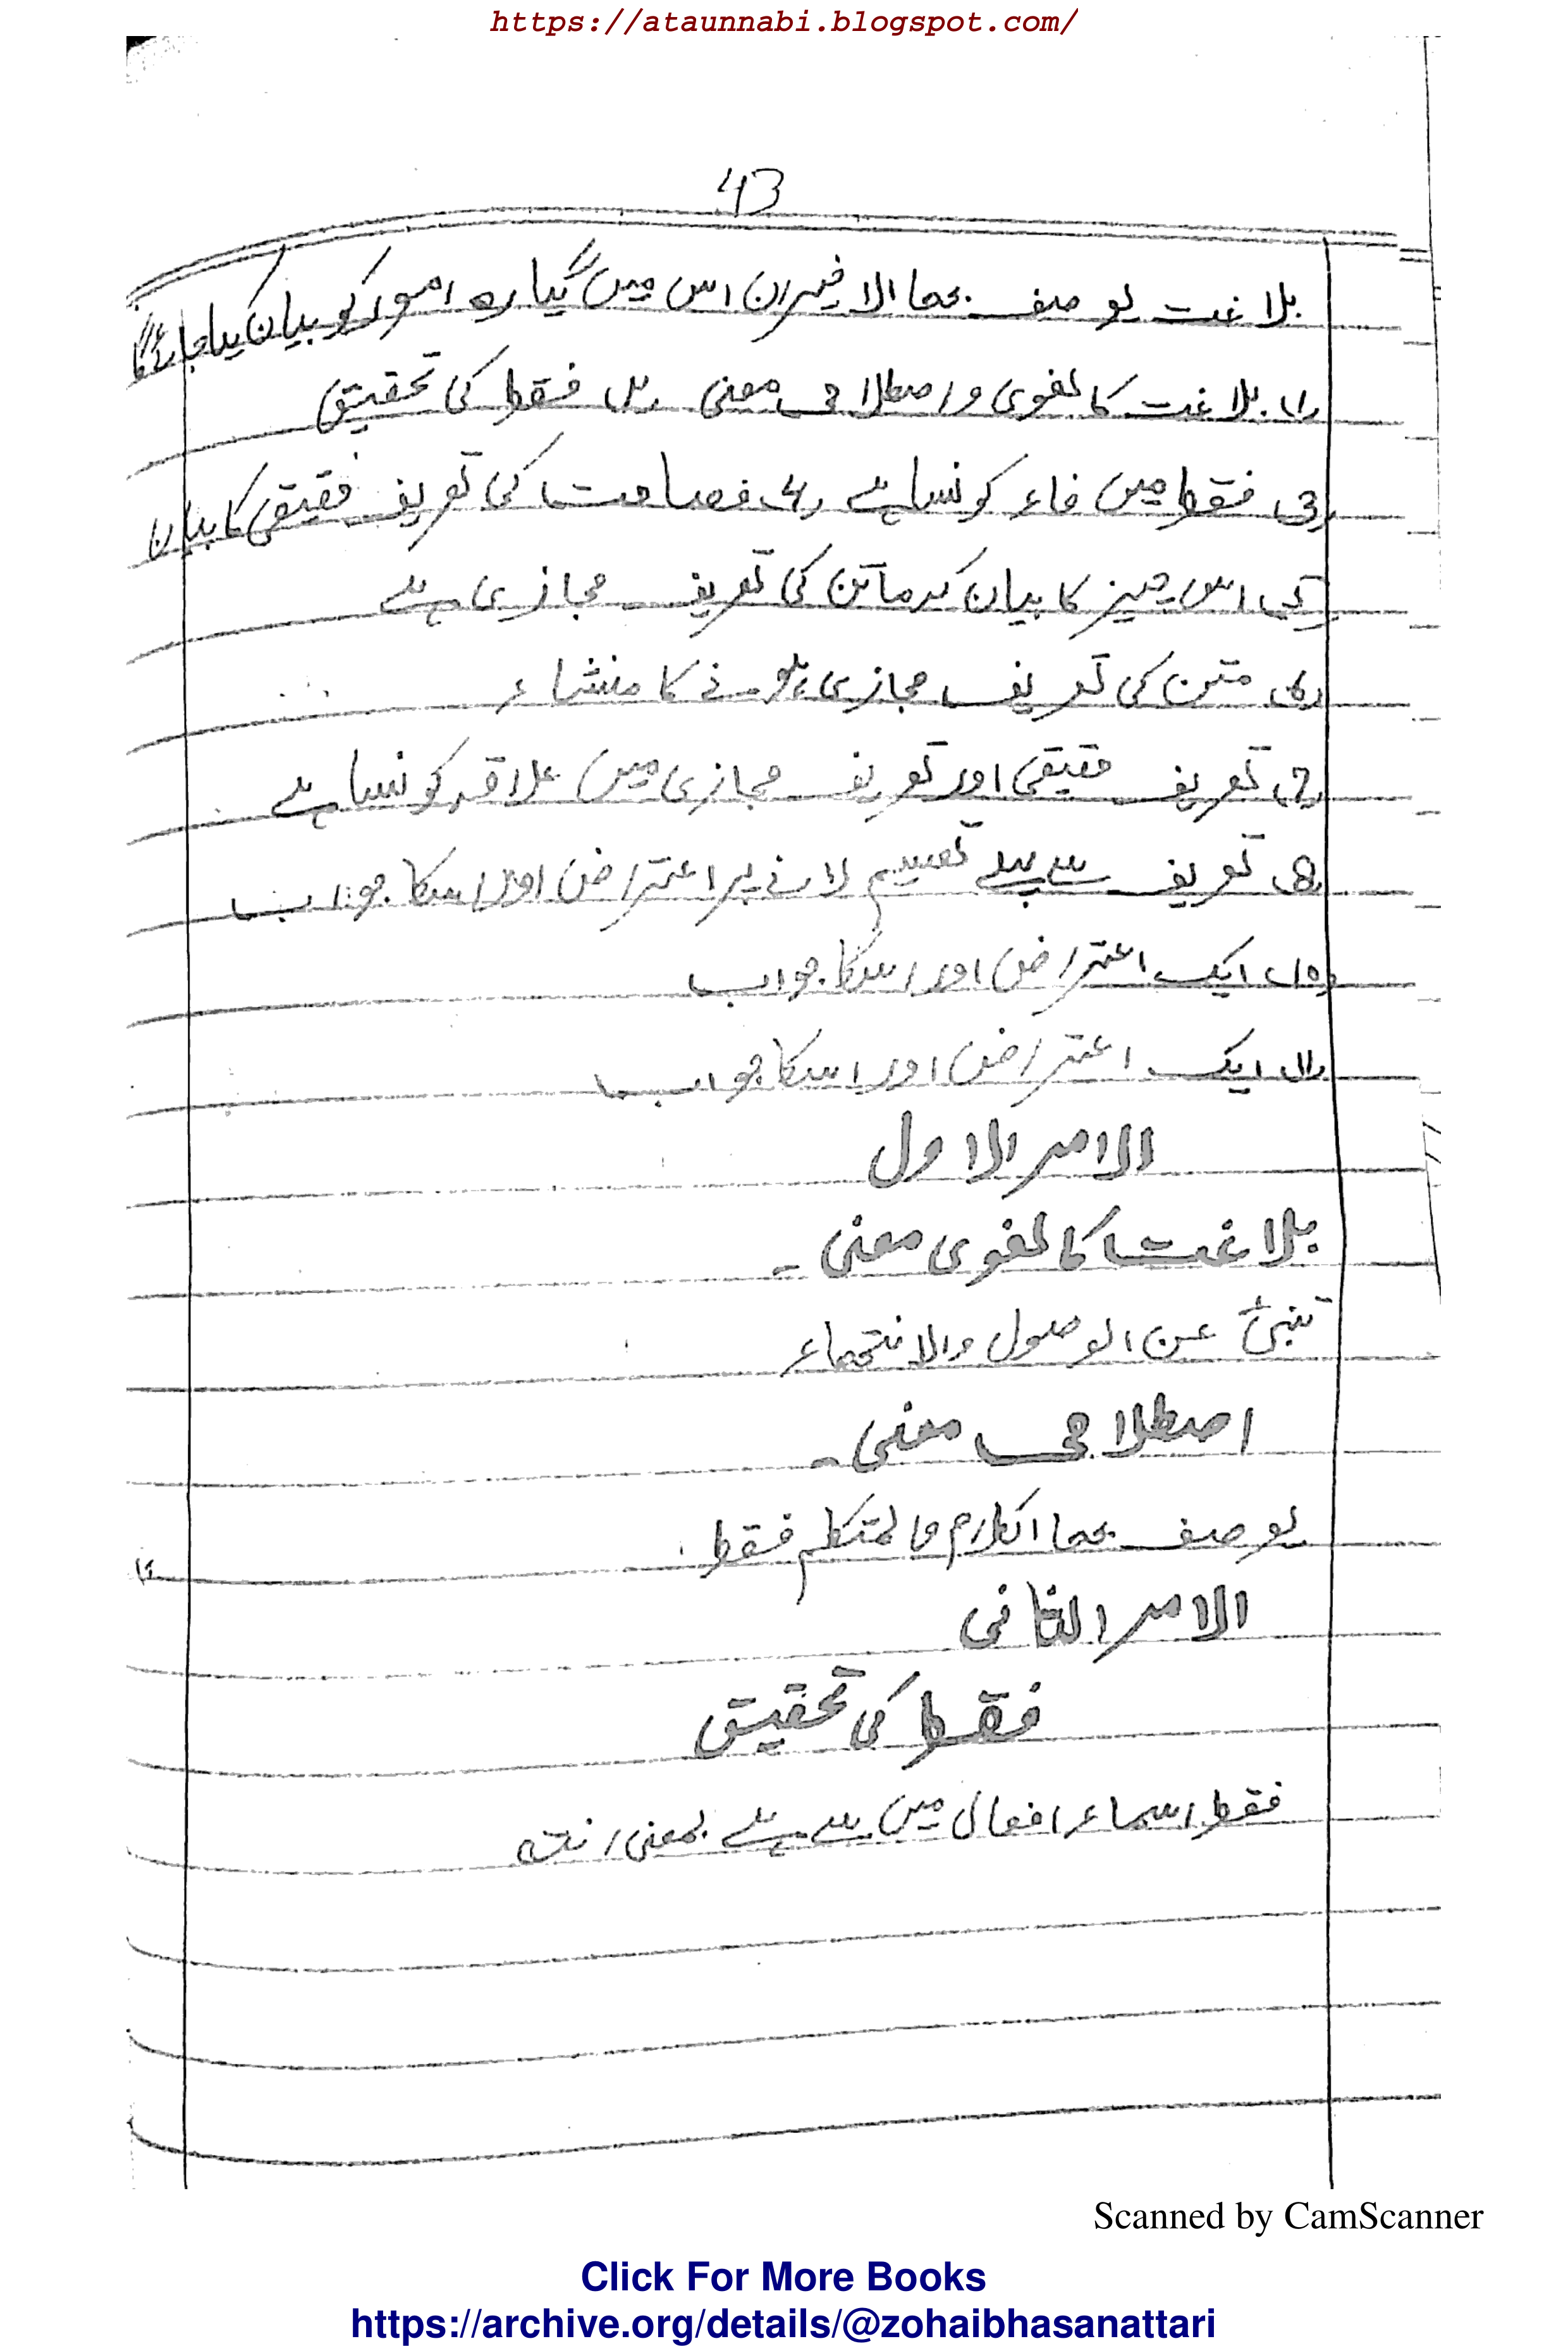 https://ataunnabi.blogspot.com/
43
بلاغت یوصف بھا الاخیران اس میں گیارہ امور کو بیان کیا جائے گا
(1) بلاغت کا لغوی و اصطلاحی معنی (2) فقط کی تحقیق
(3) فقط میں فاء کونسا ہے (4) فصاحت کی تعریف حقیقی کا بیان
(5) اس چیز کا بیان کہ ماتن کی تعریف مجازی ہے
(6) متن کی تعریف مجازی ہونے کا منشاء
(7) تعریف حقیقی اور تعریف مجازی میں علاقہ کونسا ہے
(8) تعریف سے پہلے تقسیم لانے پر اعتراض اور اسکا جواب
(10) ایک اعتراض اور اسکا جواب
(11) ایک اعتراض اور اسکا جواب
الامر الاول
بلاغت کا لغوی معنی ۔
تنبئ عن الوصول والانتھاء
اصطلاحی معنی ۔
یوصف بھا الکلام والمتکلم فقط
الامر الثانی
فقط کی تحقیق
فقط اسماء افعال میں سے ہے بمعنی انتہ
Scanned by CamScanner
Click For More Books
https://archive.org/details/@zohaibhasanattari